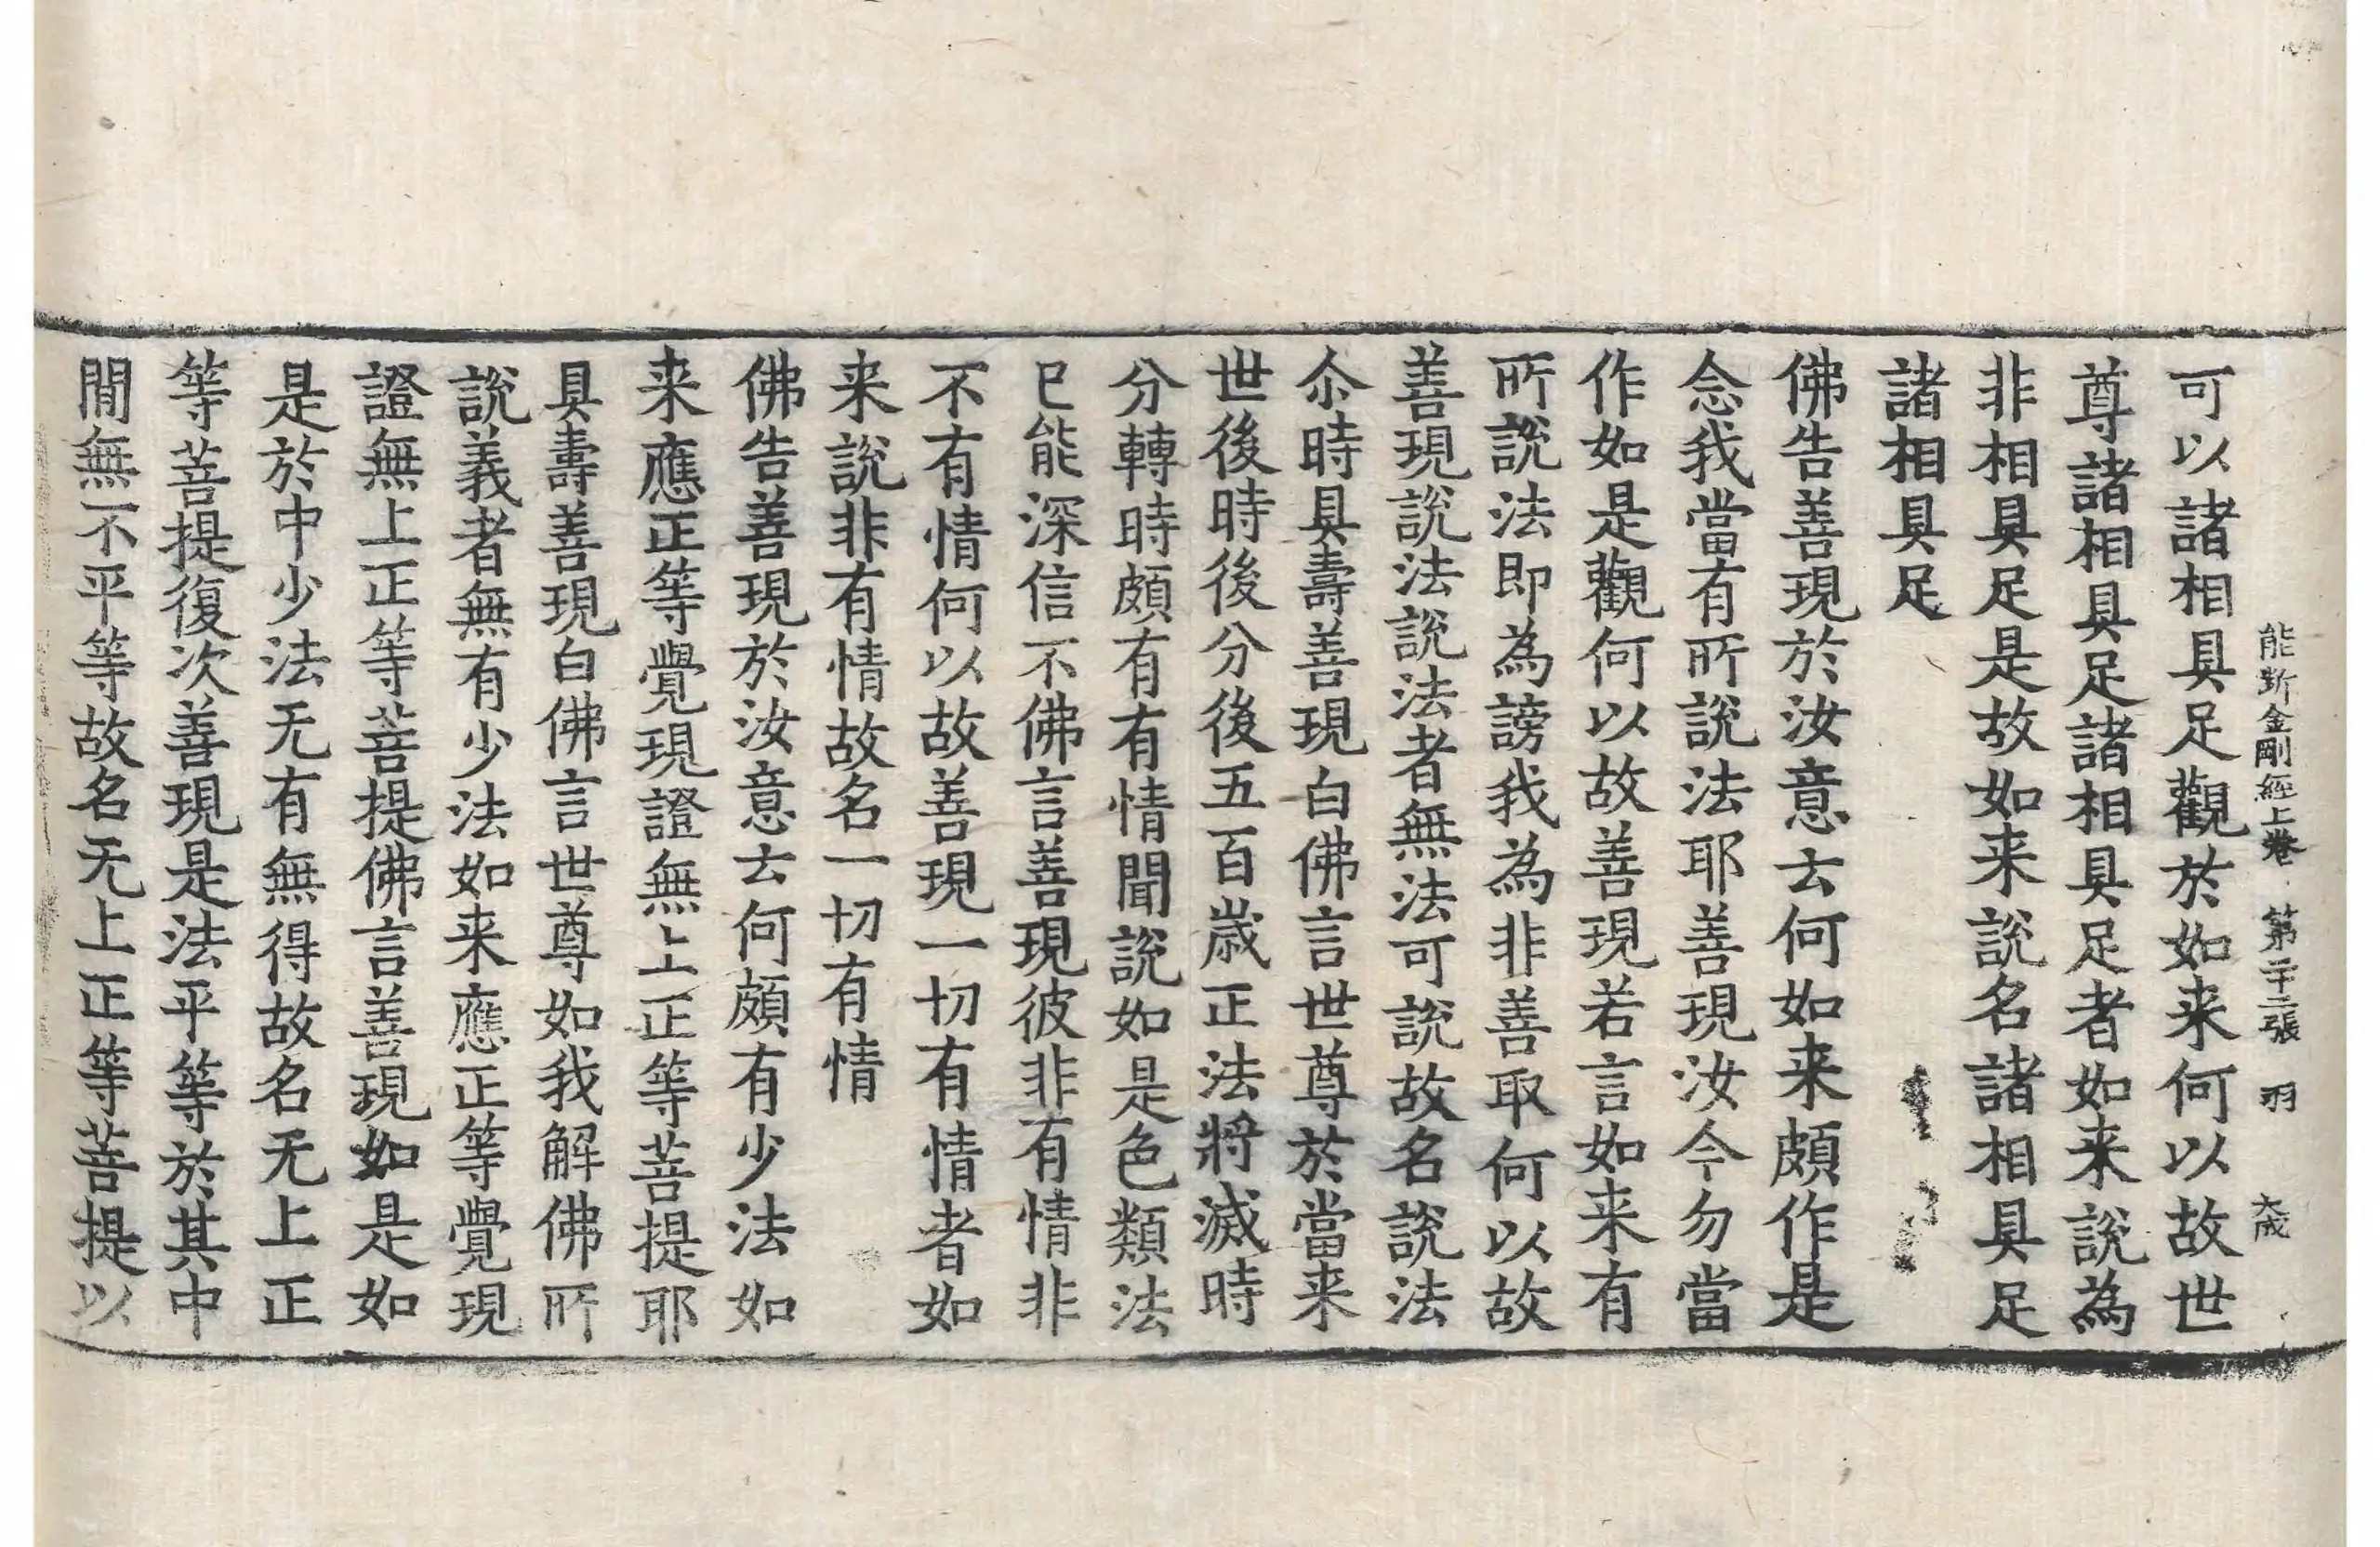 能斷金剛經上卷 第二十二張 羽 大成
可以諸相具足觀於如来何以故世
尊諸相具足諸相具足者如来說為
非相具足是故如来說名諸相具足
諸相具足
佛告善現於汝意云何如来頗作是
念我當有所說法耶善現汝今勿當
作如是觀何以故善現若言如来有
所說法即為謗我為非善取何以故
善現說法說法者無法可說故名說法
尒時具壽善現白佛言世尊於當来
世後時後分後五百歲正法將滅時
分轉時頗有有情聞說如是色類法
已能深信不佛言善現彼非有情非
不有情何以故善現一切有情者如
来說非有情故名一切有情
佛告善現於汝意云何頗有少法如
来應正等覺現證無上正等菩提耶
具壽善現白佛言世尊如我解佛所
說義者無有少法如来應正等覺現
證無上正等菩提佛言善現如是如
是於中少法无有無得故名无上正
等菩提復次善現是法平等於其中
間無不平等故名无上正等菩提以